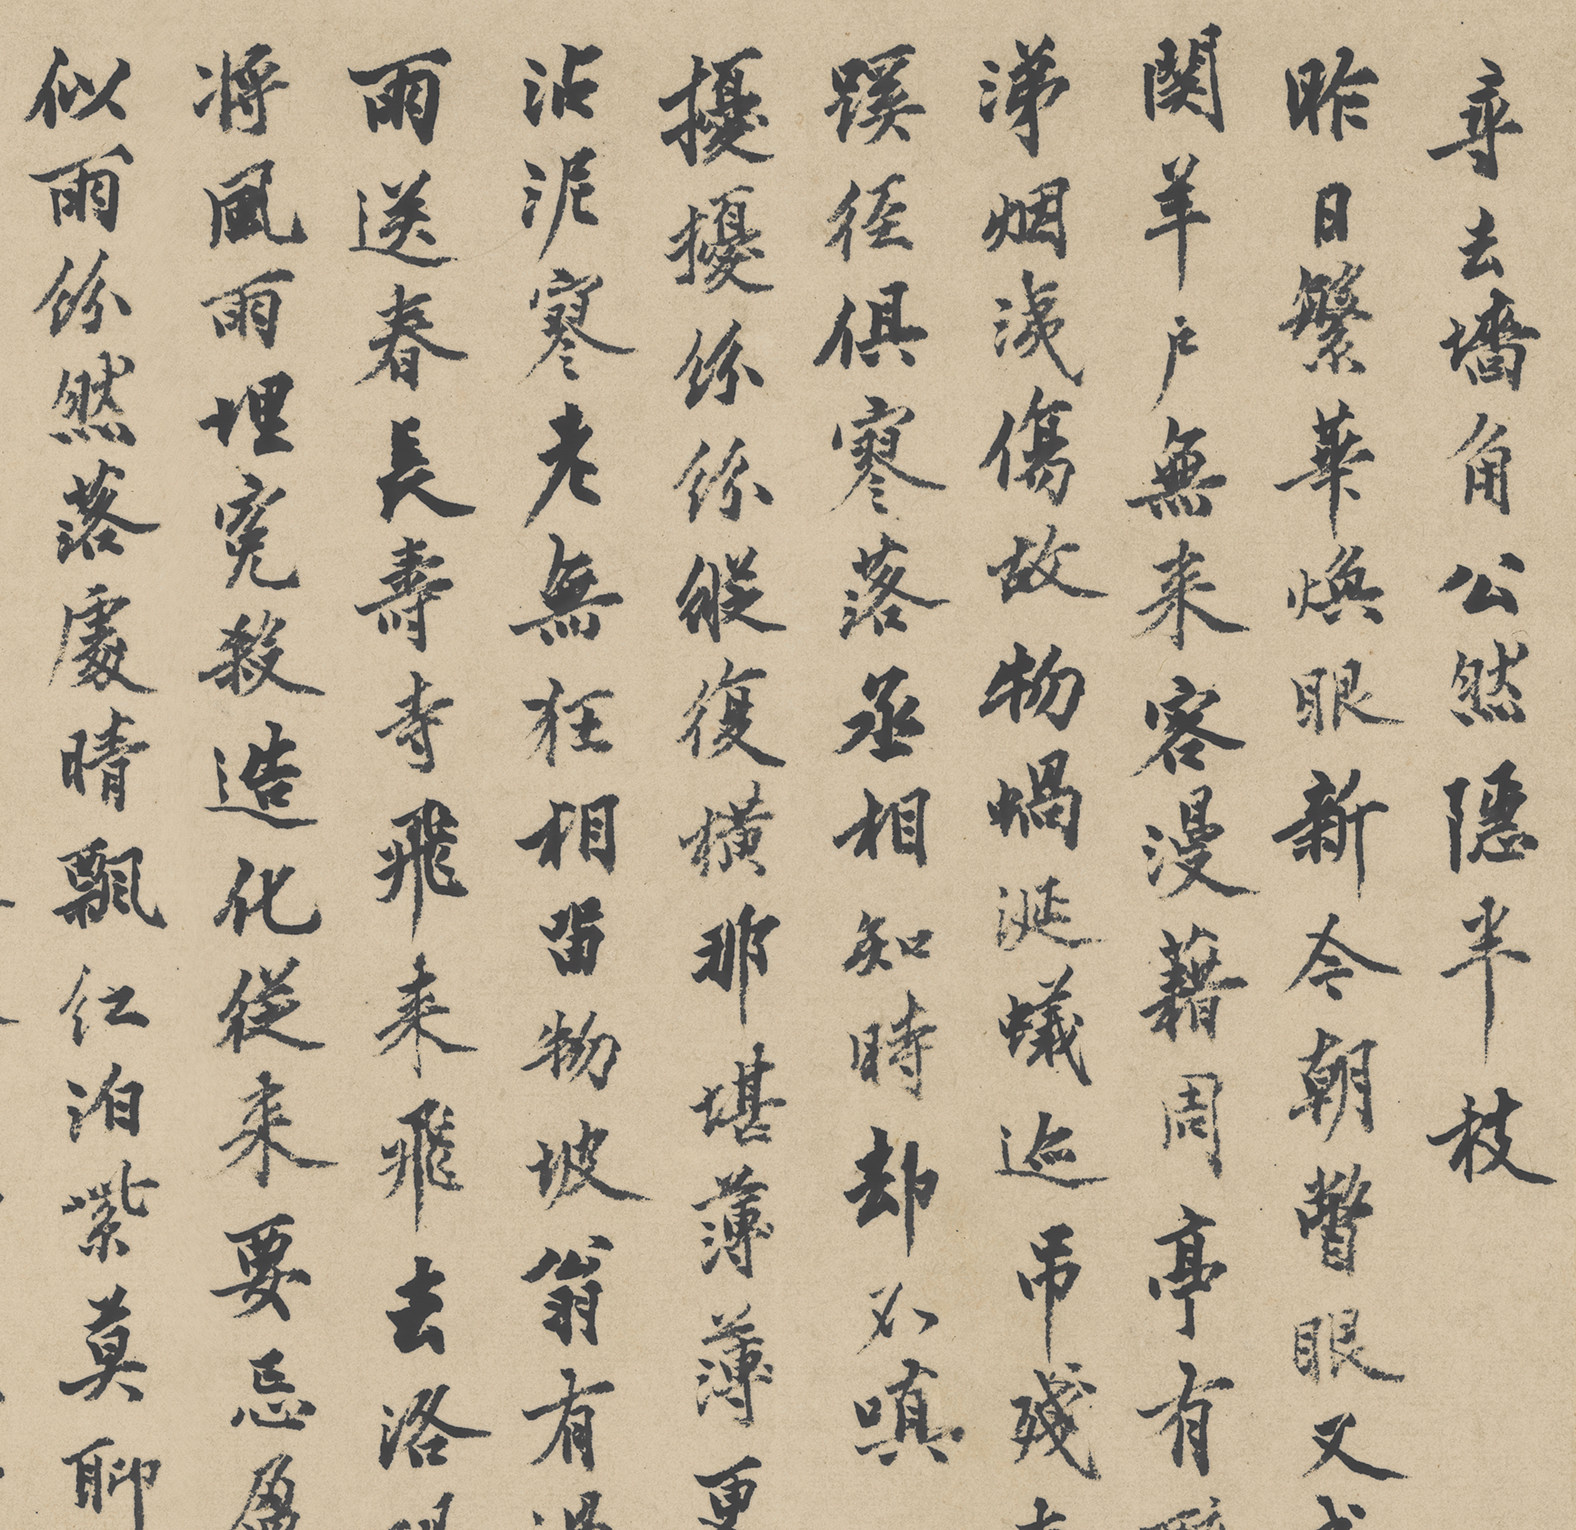 尋去墻角公然隱半枝
昨日繁華煥眼新今朝瞥眼又成
関羊戶無来客漫藉周亭有
涕烟淺傷故物蝸涎蟻迹吊殘
蹊徑俱寥落丞相知時却不嗔
擾擾紛紛縱復横那堪薄薄更
沾泥寥老無狂相留物坡翁有過
雨送春長壽寺飛来飛去洛陽
将風雨埋寃殺造化從来要忌盈
似雨紛然落處晴飄红泊紫莫聊